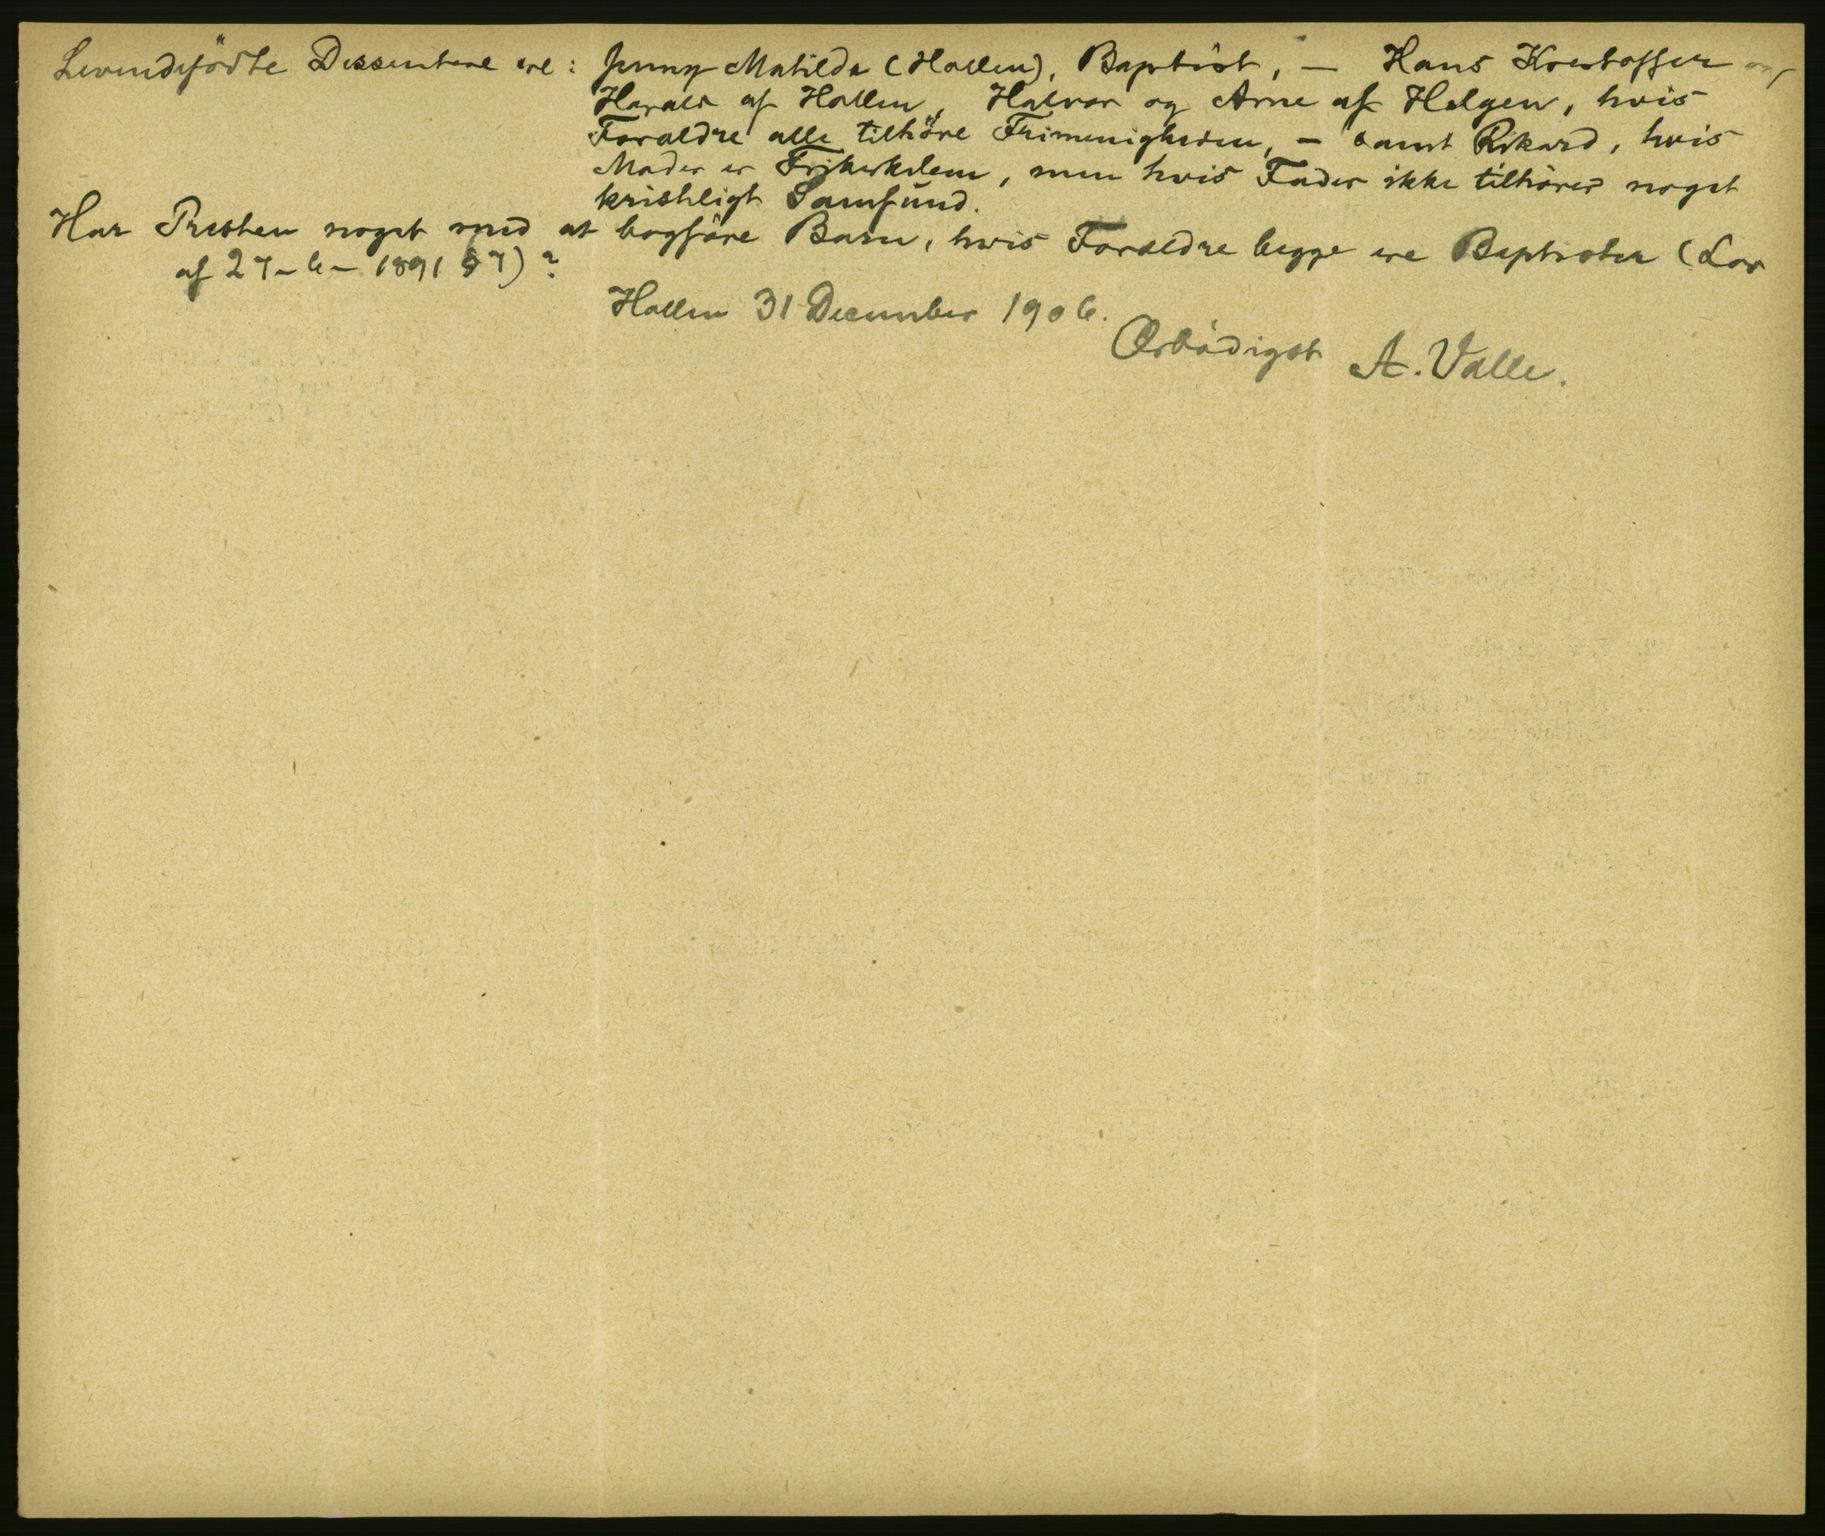 Levendefödte Dissentere ere: Jenny Matilde (Hollen), Baptist, — Hans Kristoffer og
Harald af Hollen, Halvor og Arne af Helgen, hvis
Forældre alle tilhöre Frimenigheden, — samt Rikard, hvis
Moder er Frikirkelem, men hvis Fader ikke tilhörer noget
kristeligt Samfund.
Har Presten noget med at bogföre Barn, hvis Forældre begge ere Baptister (Lov
af 27-6-1891 § 7)?
Hollen 31 December 1906.
Ærbödigst A. Valle.